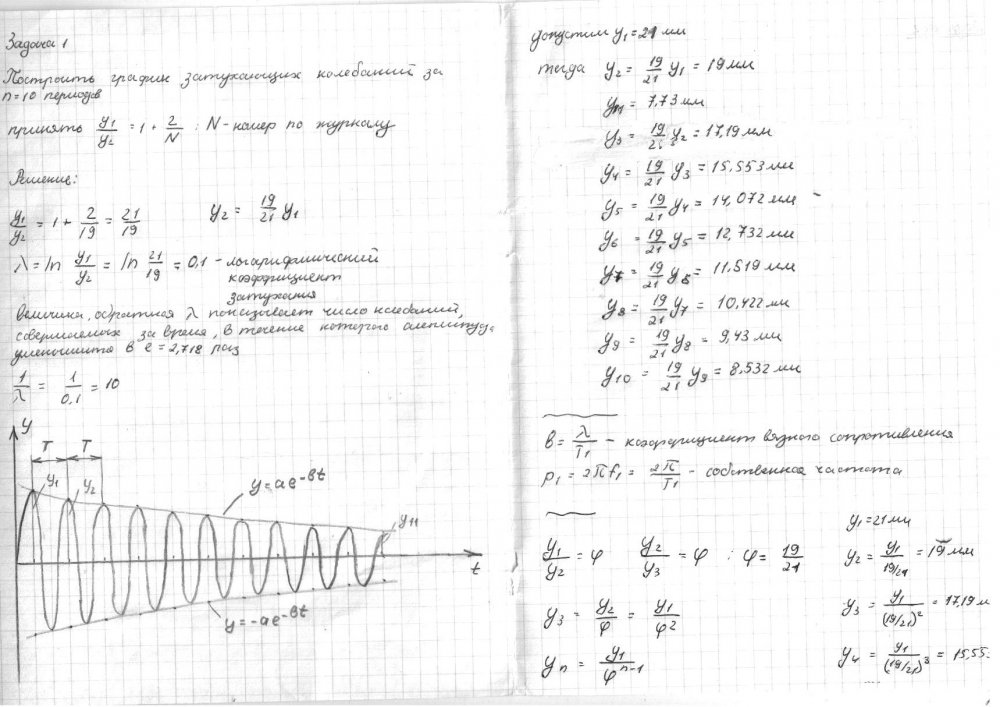 Задача 1
Построить график затухающих колебаний за
n=10 периодов
принять y₁/y₂ = 1 + 2/N : N - номер по журналу
Решение:
y₁/y₂ = 1 + 2/19 = 21/19 y₂ = 19/21 y₁
λ = ln y₁/y₂ = ln 21/19 = 0,1 - логарифмический
коэффициент
затухания
величина, обратная λ показывает число колебаний,
совершаемых за время, в течение которого амплитуда
уменьшится в e = 2,718 раз
1/λ = 1/0,1 = 10
y
T T
y₁ y₂
y = ae^-bt
y₁₁
t
y = -ae^-bt
допустим y₁ = 21 мм
тогда y₂ = 19/21 y₁ = 19 мм
y₁₁ = 7,73 мм
y₃ = 19/21 y₂ = 17,19 мм
y₄ = 19/21 y₃ = 15,553 мм
y₅ = 19/21 y₄ = 14,072 мм
y₆ = 19/21 y₅ = 12,732 мм
y₇ = 19/21 y₆ = 11,519 мм
y₈ = 19/21 y₇ = 10,422 мм
y₉ = 19/21 y₈ = 9,43 мм
y₁₀ = 19/21 y₉ = 8,532 мм
b = λ/T₁ - коэффициент вязкого сопротивления
p₁ = 2πf₁ = 2π/T₁ - собственная частота
y₁ = 21 мм
y₁/y₂ = φ y₂/y₃ = φ : φ = 19/21 y₂ = y₁/(19/21) = 19 мм
y₃ = y₂/φ = y₁/φ² y₃ = y₁/(19/21)² = 17,19 м
yₙ = y₁/φⁿ⁻¹ y₄ = y₁/(19/21)³ = 15,55